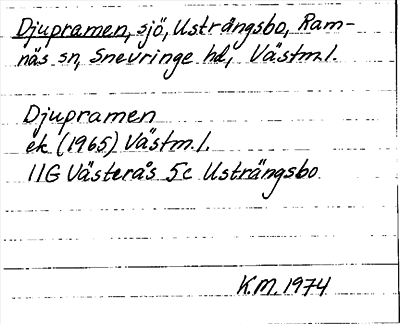 Djupramen, sjö, Usträngsbo, Ram-
näs sn, Snevringe hd, Västm.l.
Djupramen
ek. (1965) Västm.l.
11G Västerås 5c Usträngsbo
K.M. 1974